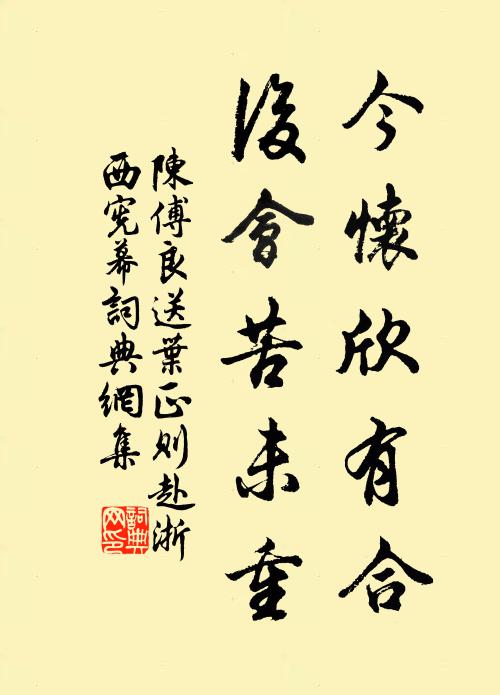 今懷欣有合
後會苦未重
陳傅良送葉正則赴浙
西憲幕詞典網集
詞典
网印